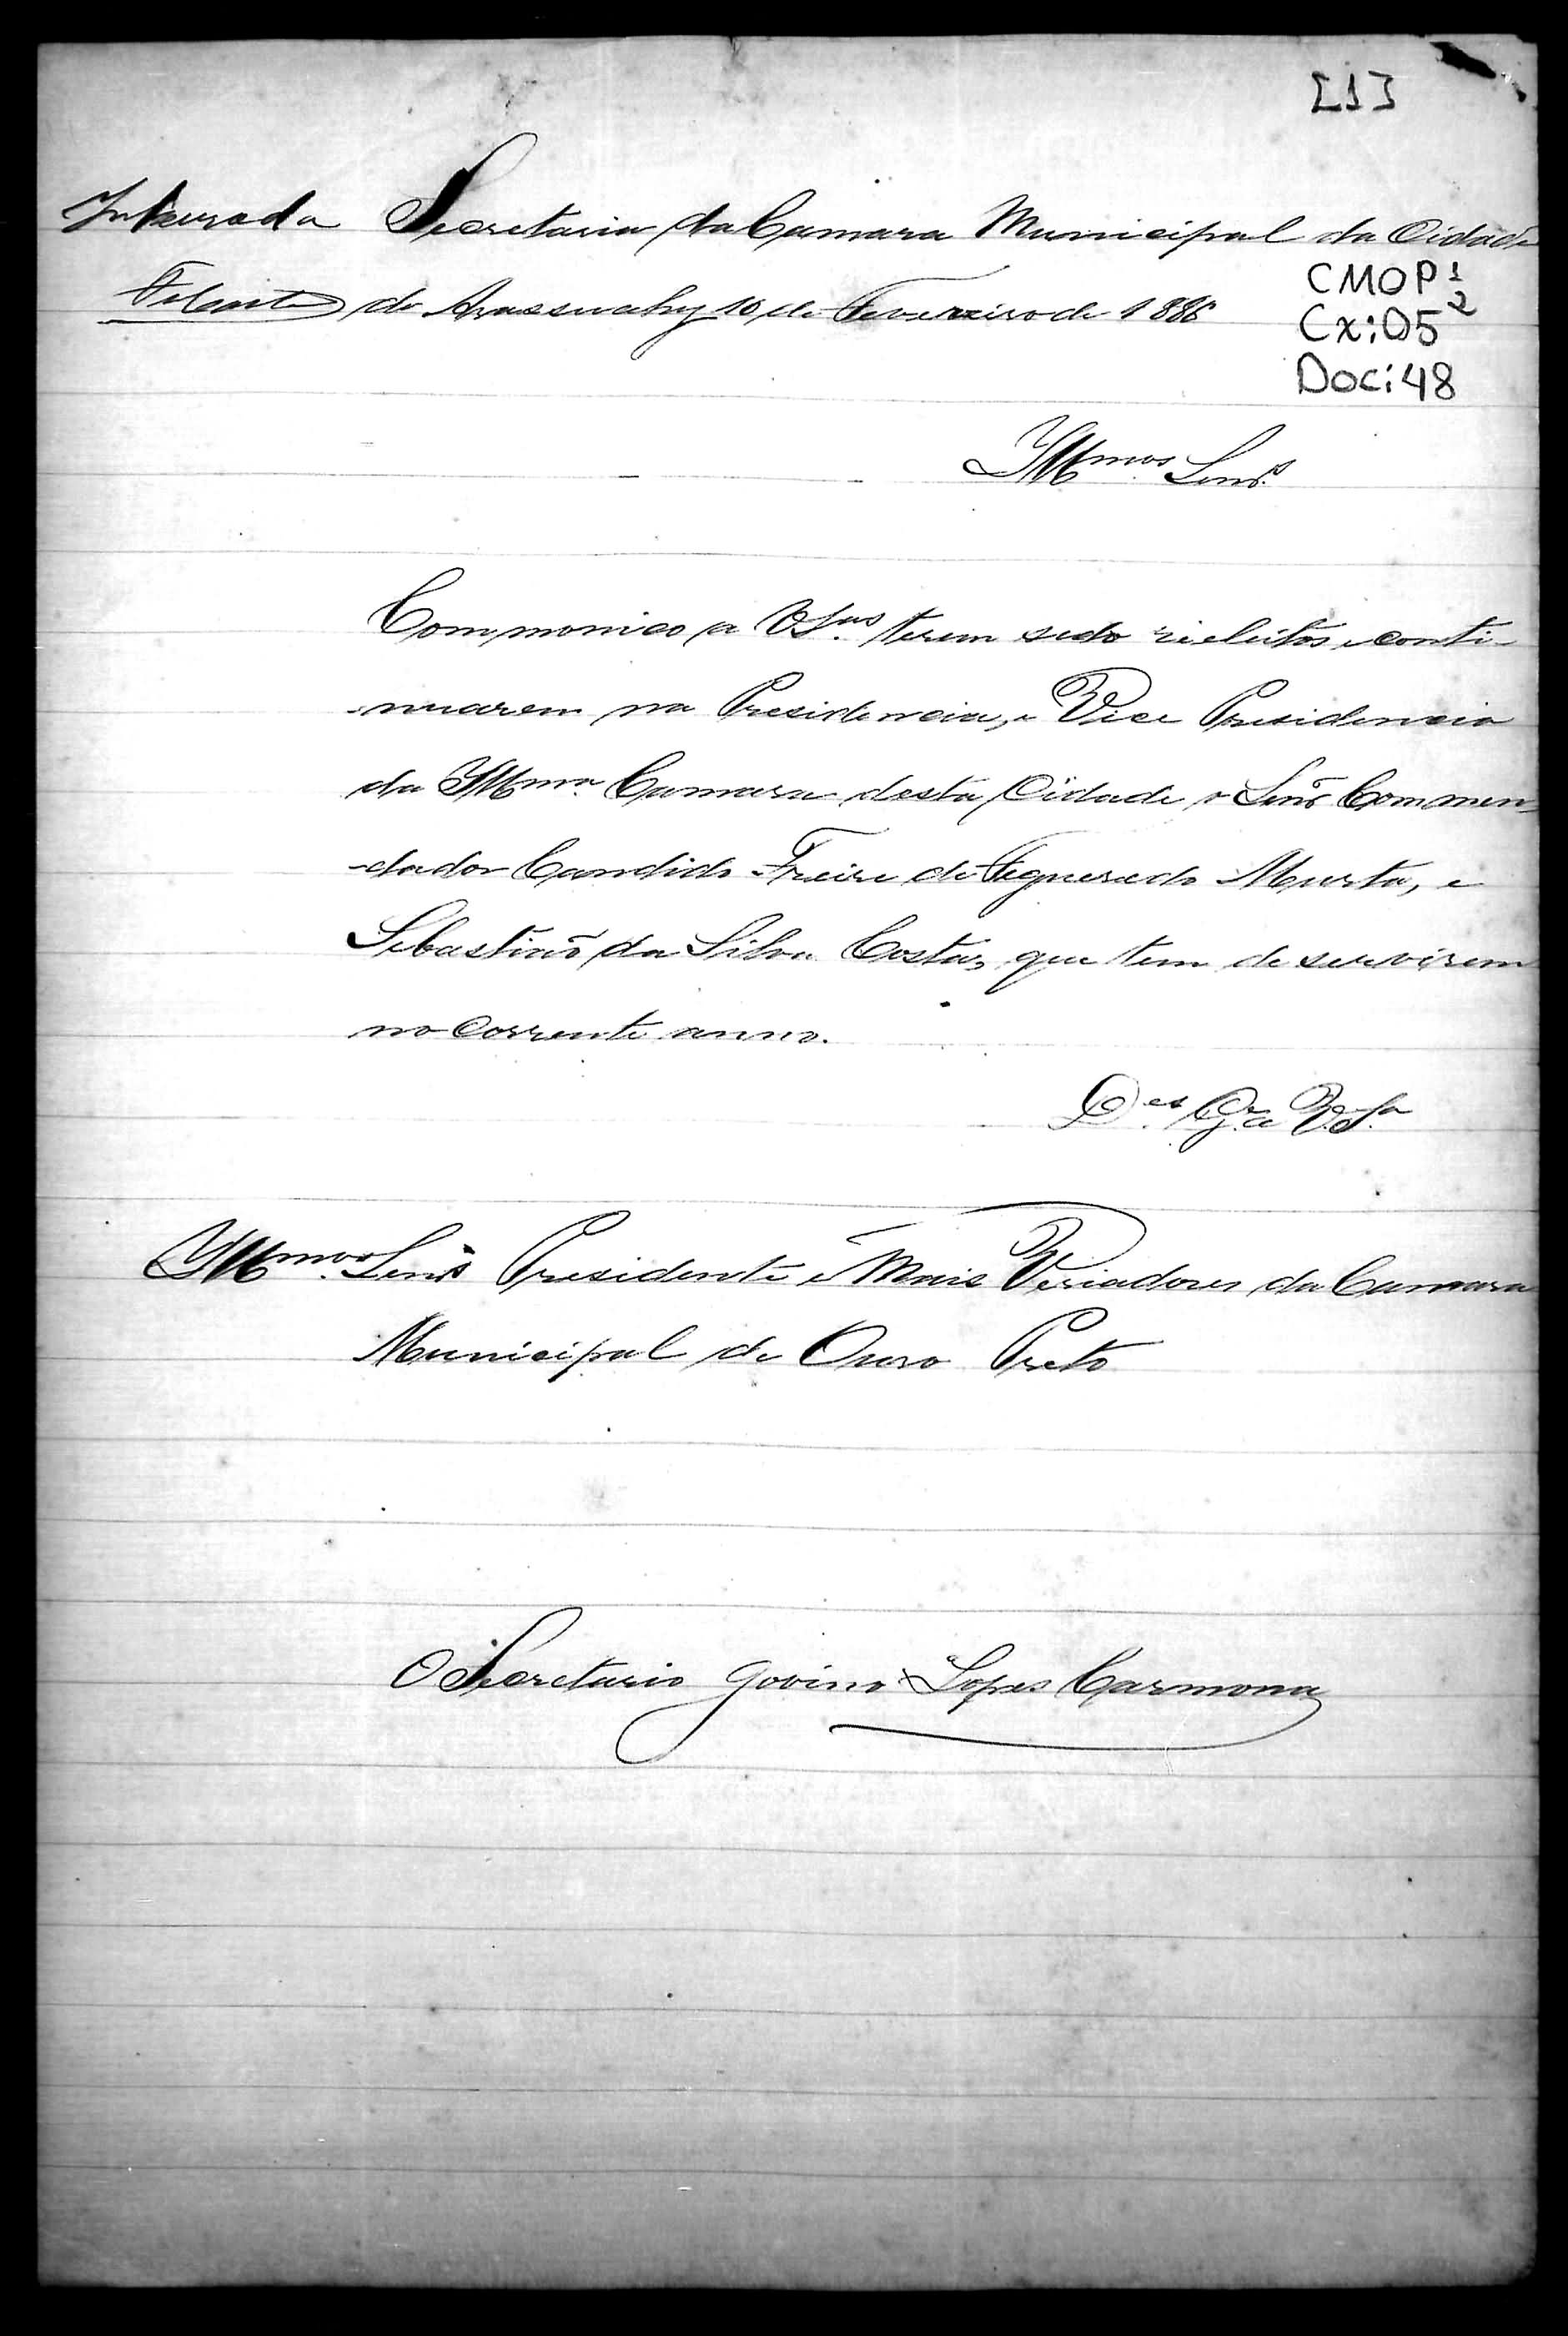 [1]
Inteirada Secretaria da Camara Municipal da Cidade
de Arassuahy 10 de Fevereiro de 1886
CMOP 1
Cx: 05 2
Doc: 48
Illmos. Senrs.
Commonico a VSas. terem sedo rieleitos e conti-
nuarem na Presidencia, e Vice Presidencia
da Illma. Camara desta Cidade o Senr Commen
-dador Candido Freire de Figueredo Murta, e
Sebastião da Silva Costa, que tem de servirem
no Corrente anno.
Des. Ge. a V.Sa.
Illmos. Senrs Presidente e Mais Veriadores da Camara
Municipal de Ouro Preto
O Secretario Jovino Lopes Carmona